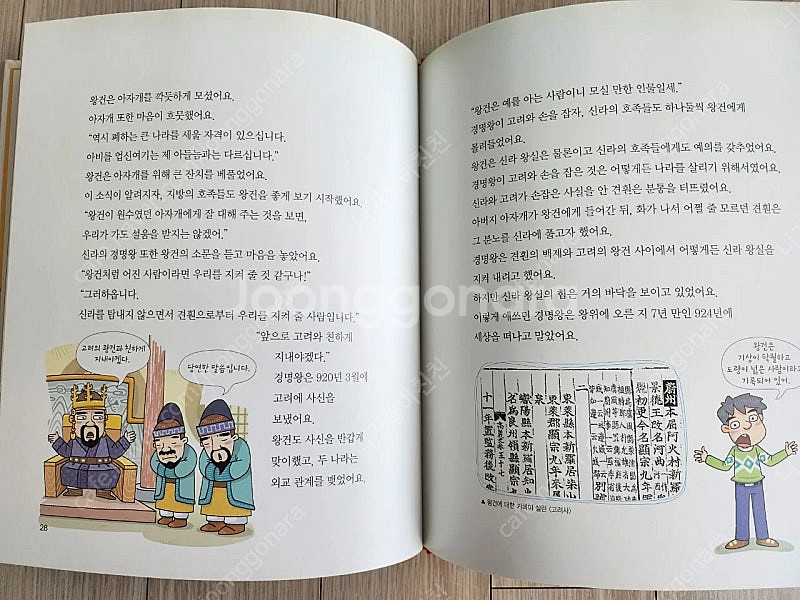 왕건은 아자개를 깍듯하게 모셨어요.
아자개 또한 마음이 흐뭇했어요.
“역시 폐하는 큰 나라를 세울 자격이 있으십니다.
아비를 업신여기는 제 아들놈과는 다르십니다.”
왕건은 아자개를 위해 큰 잔치를 베풀었어요.
이 소식이 알려지자, 지방의 호족들도 왕건을 좋게 보기 시작했어요.
“왕건이 원수였던 아자개에게 잘 대해 주는 것을 보면,
우리가 가도 설움을 받지는 않겠어.”
신라의 경명왕 또한 왕건의 소문을 듣고 마음을 놓았어요.
“왕건처럼 어진 사람이라면 우리를 지켜 줄 것 같구나!”
“그러하옵니다.
신라를 탐내지 않으면서 견훤으로부터 우리를 지켜 줄 사람입니다.”
“앞으로 고려와 친하게
지내야겠다.”
경명왕은 920년 3월에
고려에 사신을
보냈어요.
왕건도 사신을 반갑게
맞이했고, 두 나라는
외교 관계를 맺었어요.
고려의 왕건과 친하게
지내야겠다.
당연한 말씀입니다.
28
“왕건은 예를 아는 사람이니 모실 만한 인물일세.”
경명왕이 고려와 손을 잡자, 신라의 호족들도 하나둘씩 왕건에게
몰려들었어요.
왕건은 신라 왕실은 물론이고 신라의 호족들에게도 예의를 갖추었어요.
경명왕이 고려와 손을 잡은 것은 어떻게든 나라를 살리기 위해서였어요.
신라와 고려가 손잡은 사실을 안 견훤은 분통을 터뜨렸어요.
아버지 아자개가 왕건에게 들어간 뒤, 화가 나서 어쩔 줄 모르던 견훤은
그 분노를 신라에 풀고자 했어요.
경명왕은 견훤의 백제와 고려의 왕건 사이에서 어떻게든 신라 왕실을
지켜 내려고 했어요.
하지만 신라 왕실의 힘은 거의 바닥을 보이고 있었어요.
이렇게 애쓰던 경명왕은 왕위에 오른 지 7년 만인 924년에
세상을 떠나고 말았어요.
왕건은
기상이 탁월하고
도량이 넓은 사람이라고
기록되어 있어.
蔚州本屈阿火村新羅
景德王改名河曲
縣初更今名顯宗九年
東萊縣本新羅居柒山
東萊郡顯宗九年來屬
高麗史 五十七
十一年置監務後改
▲ 왕건에 대한 기록이 실린 《고려사》
Joonggonara